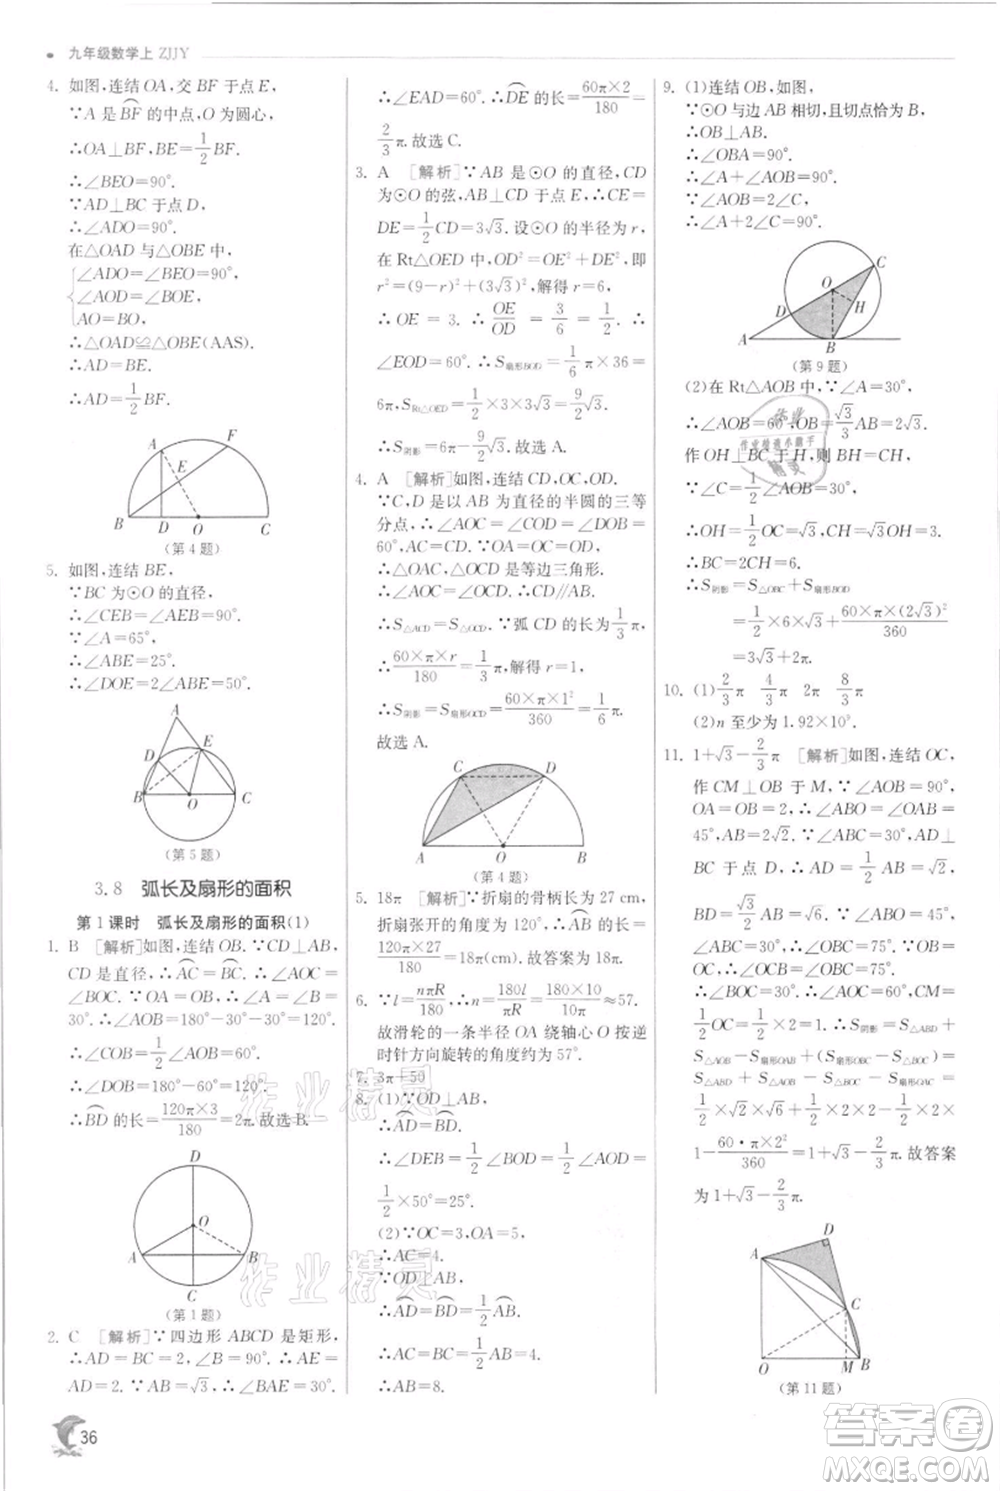 九年级数学上 ZJJY
4. 如图,连结OA,交BF于点E,
∵A是BF⌒的中点,O为圆心,
∴OA⊥BF,BE=1/2BF.
∴∠BEO=90°.
∵AD⊥BC于点D,
∴∠ADO=90°.
在△OAD与△OBE中,
∠ADO=∠BEO=90°,
∠AOD=∠BOE,
AO=BO,
∴△OAD≌△OBE(AAS).
∴AD=BE.
∴AD=1/2BF.
A F E B D O C
(第4题)
5. 如图,连结BE,
∵BC为⊙O的直径,
∴∠CEB=∠AEB=90°.
∵∠A=65°,
∴∠ABE=25°.
∴∠DOE=2∠ABE=50°.
A D E B O C
(第5题)
3.8 弧长及扇形的面积
第1课时 弧长及扇形的面积(1)
1. B [解析]如图,连结OB.∵CD⊥AB,
CD是直径,∴AC⌒=BC⌒.∴∠AOC=
∠BOC.∵OA=OB,∴∠A=∠B=
30°.∴∠AOB=180°-30°-30°=120°.
∴∠COB=1/2∠AOB=60°.
∴∠DOB=180°-60°=120°.
∴BD⌒的长=120π×3/180=2π.故选B.
D O A B C
(第1题)
2. C [解析]∵四边形ABCD是矩形,
∴AD=BC=2,∠B=90°.∴AE=
AD=2.∵AB=√3,∴∠BAE=30°.
36
∴∠EAD=60°.∴DE⌒的长=60π×2/180=
2/3π.故选C.
3. A [解析]∵AB是⊙O的直径,CD
为⊙O的弦,AB⊥CD于点E,∴CE=
DE=1/2CD=3√3.设⊙O的半径为r,
在Rt△OED中,OD²=OE²+DE²,即
r²=(9-r)²+(3√3)²,解得r=6,
∴OE=3.∴OE/OD=3/6=1/2.∴
∠EOD=60°.∴S扇形BOD=1/6π×36=
6π,S Rt△OED=1/2×3×3√3=9/2√3.
∴S阴影=6π-9/2√3.故选A.
4. A [解析]如图,连结CD,OC,OD.
∵C,D是以AB为直径的半圆的三等
分点,∴∠AOC=∠COD=∠DOB=
60°,AC=CD.∵OA=OC=OD,
∴△OAC,△OCD是等边三角形.
∴∠AOC=∠OCD.∴CD∥AB.
∴S△ACD=S△OCD.∵弧CD的长为1/3π,
∴60×π×r/180=1/3π,解得r=1,
∴S阴影=S扇形OCD=60×π×1²/360=1/6π.
故选A.
C D A O B
(第4题)
5. 18π [解析]∵折扇的骨柄长为27 cm,
折扇张开的角度为120°,∴AB⌒的长=
120π×27/180=18π(cm).故答案为18π.
6. ∵l=nπR/180,∴n=180l/πR=180×10/10π≈57.
故滑轮的一条半径OA绕轴心O按逆
时针方向旋转的角度约为57°.
7. 3π+50
8. (1)∵OD⊥AB,
∴AD⌒=BD⌒.
∴∠DEB=1/2∠BOD=1/2∠AOD=
1/2×50°=25°.
(2)∵OC=3,OA=5,
∴AC=4.
∵OD⊥AB,
∴AD⌒=BD⌒=1/2AB⌒.
∴AC=BC=1/2AB=4.
∴AB=8.
9. (1)连结OB,如图,
∵⊙O与边AB相切,且切点恰为B,
∴OB⊥AB.
∴∠OBA=90°.
∴∠A+∠AOB=90°.
∵∠AOB=2∠C,
∴∠A+2∠C=90°.
C O D H A B
(第9题)
(2)在Rt△AOB中,∵∠A=30°,
∴∠AOB=60°,OB=√3/3AB=2√3.
作OH⊥BC于H,则BH=CH.
∵∠C=1/2∠AOB=30°,
∴OH=1/2OC=√3,CH=√3OH=3.
∴BC=2CH=6.
∴S阴影=S△OBC+S扇形BOD
=1/2×6×√3+60×π×(2√3)²/360
=3√3+2π.
10. (1)2/3π 4/3π 2π 8/3π
(2)n至少为1.92×10⁹.
11. 1+√3-2/3π [解析]如图,连结OC,
作CM⊥OB于M,∵∠AOB=90°,
OA=OB=2,∴∠ABO=∠OAB=
45°,AB=2√2.∵∠ABC=30°,AD⊥
BC于点D,∴AD=1/2AB=√2,
BD=√3/2AB=√6.∵∠ABO=45°,
∠ABC=30°,∴∠OBC=75°.
∵OB=OC,∴∠OCB=∠OBC=75°.
∴∠BOC=30°.∴∠AOC=60°,CM=
1/2OC=1/2×2=1.∴S阴影=S△ABD+
S△AOB-S扇形OAC-S△BOC=S扇形OAC=
1/2×√2×√6+1/2×2×2-1/2×2×
1-60·π×2²/360=1+√3-2/3π.故答案
为1+√3-2/3π.
D A C O M B
(第11题)
作业精灵
作业精灵
答案圈
MXQE.COM